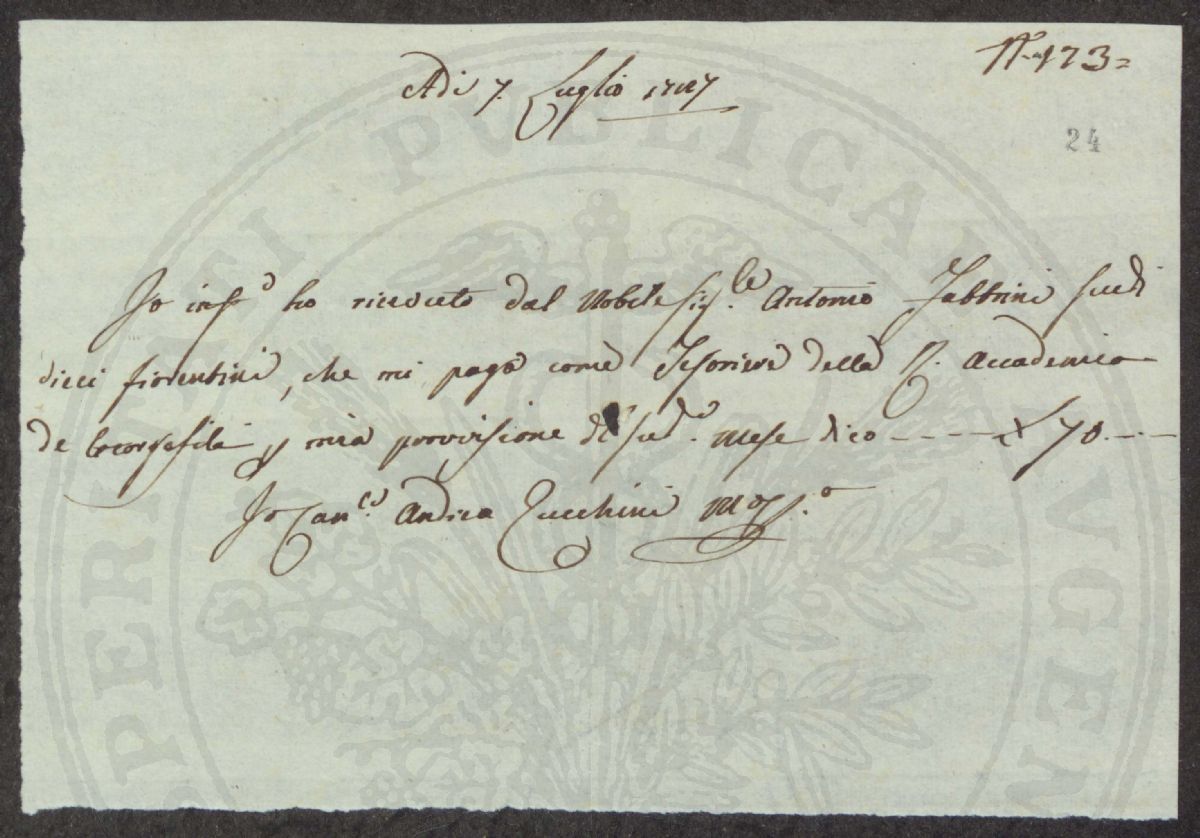 N.° 123=
Adi 7. Luglio 1787
24
Io infr.o ho ricevuto dal Nobile Sig.le Antonio Fabbrini scudi
dieci fiorentini, che mi paga come Tesoriere della R. Accademia
de Georgofili p mia provisione di sud.o mese dico ---- £ 70. ---
Io Can.co Andrea Zucchini
PROSPERITATI PUBLICAE AUGEN